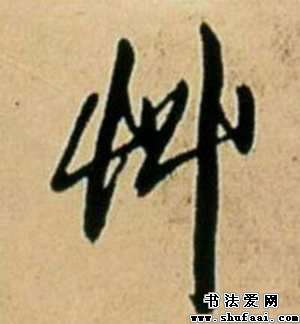 艸
书法爱网
www.shufaai.com